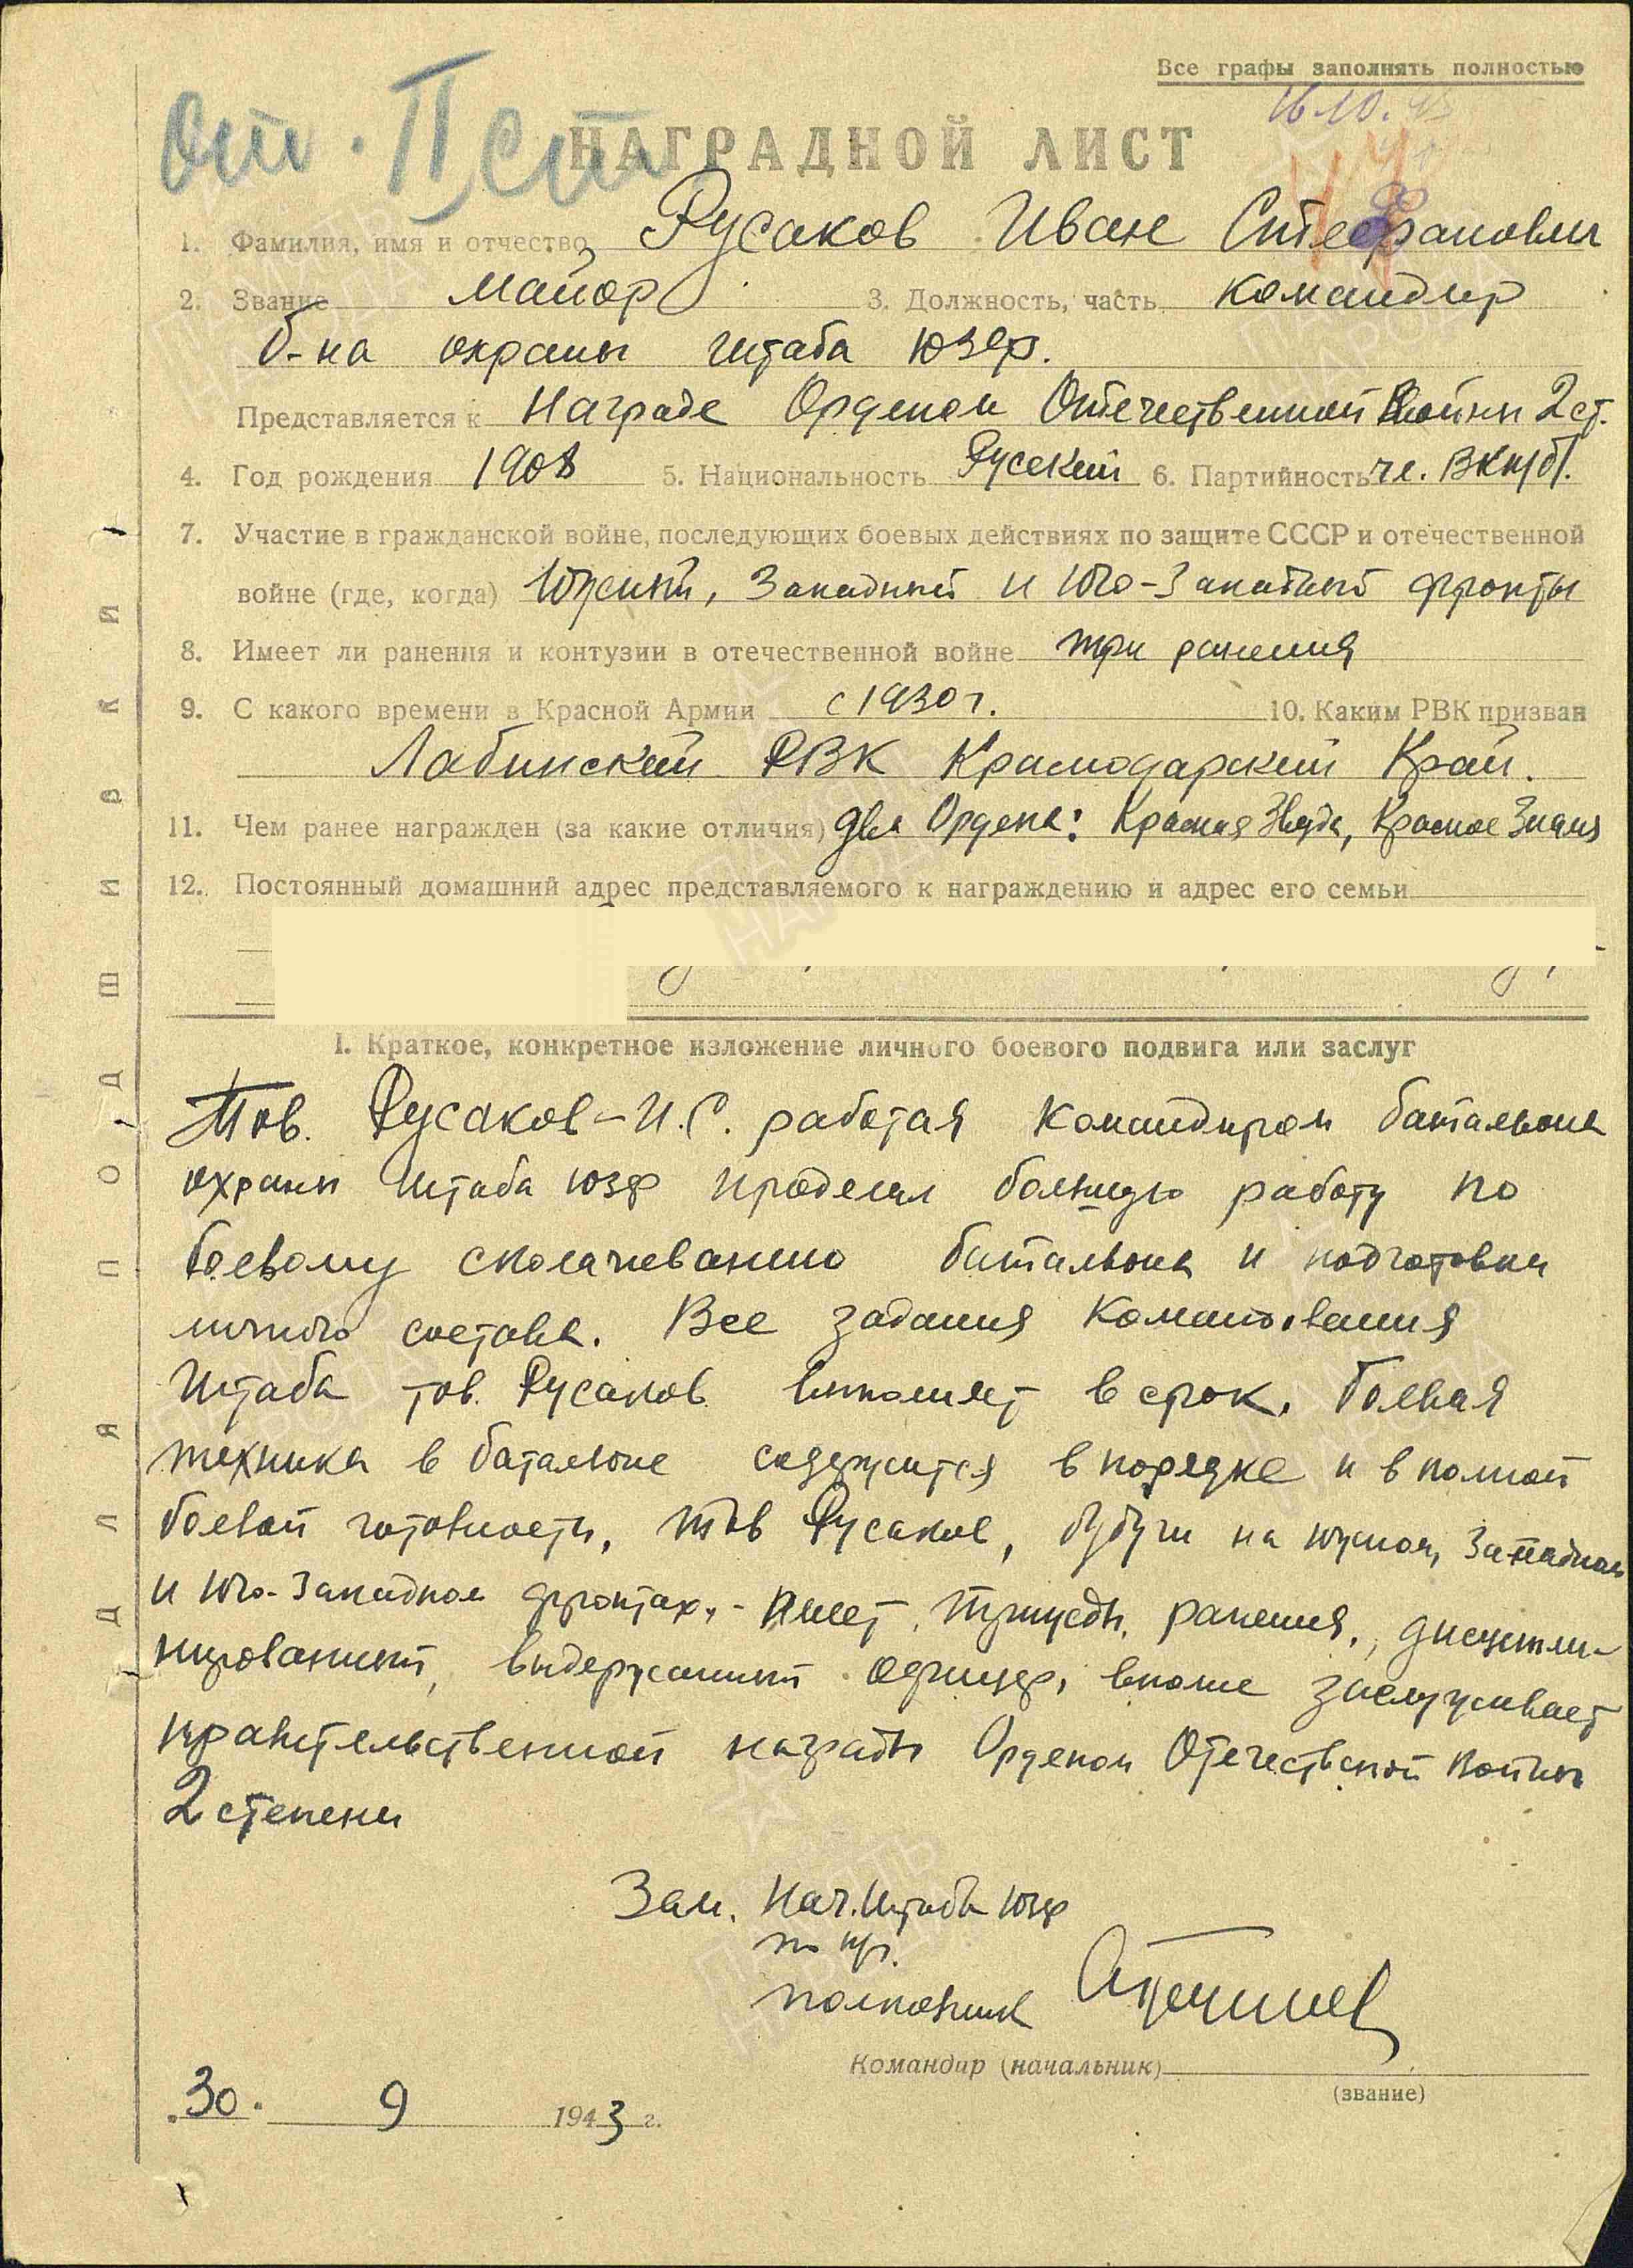 Все графы заполнять полностью
От. II ст
16.10.43
НАГРАДНОЙ ЛИСТ
1. Фамилия, имя и отчество Русаков Иван Стефанович
2. Звание майор 3. Должность, часть командир
б-на охраны штаба ЮЗФр.
Представляется к Награде Орденом Отечественной Войны 2 ст.
4. Год рождения 1908 5. Национальность Русский 6. Партийность чл. ВКП/б/.
7. Участие в гражданской войне, последующих боевых действиях по защите СССР и отечественной
войне (где, когда) Южный, Западный и Юго-Западный фронты
8. Имеет ли ранения и контузии в отечественной войне три ранения
9. С какого времени в Красной Армии с 1930 г. 10. Каким РВК призван
Лабинский РВК Краснодарский Край.
11. Чем ранее награжден (за какие отличия) два Ордена: Красная Звезда, Красное Знамя
12. Постоянный домашний адрес представляемого к награждению и адрес его семьи
I. Краткое, конкретное изложение личного боевого подвига или заслуг
Тов. Русаков-И.С. работая командиром батальона
охраны Штаба ЮЗФ проделал большую работу по
боевому сколачеванию батальона и подготовки
личного состава. Все задания Командования
Штаба тов. Русаков выполняет в срок. Боевая
техника в батальоне содержится в порядке и в полной
боевой готовности, тов Русаков, будучи на южном, Западном
и Юго-Западном фронтах, - имеет, трижды, ранения, дисципли-
нированный, выдержанный офицер, вполне заслуживает
правительственной награды Орденом Отечественой Войны
2 степени
Зам. Нач. Штаба ЮЗФ
по
полковник
Командир (начальник)
(звание)
30. 9 1943 г.
ДЛЯ ПОДШИВКИ